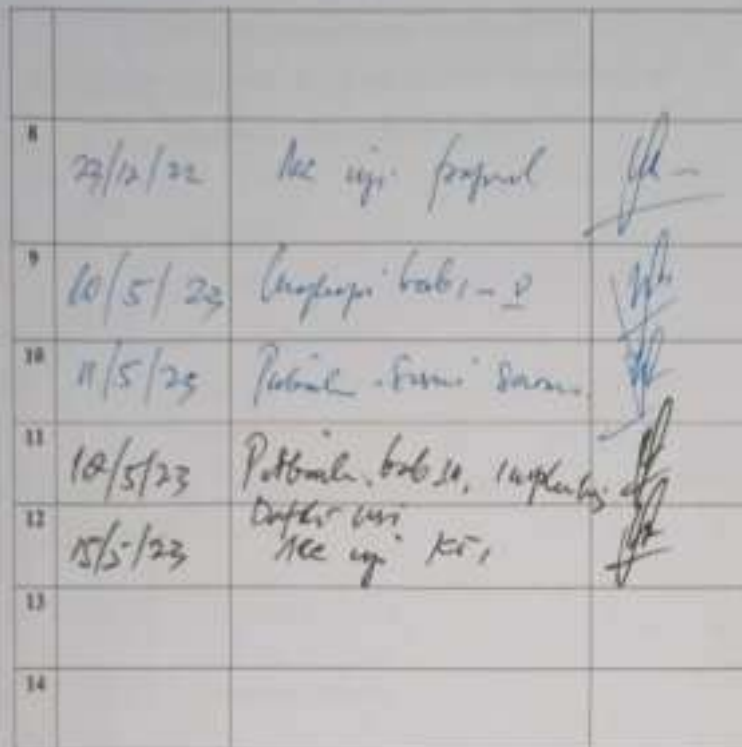 8 27/12/22 Acc uji proposal
9 10/5/23 Lengkapi bab 1 - V
10 11/5/23 Perbaiki sesuai saran
11 12/5/23 Perbaiki bab
Daftar isi
12 15/5/23 Acc uji KTI
13
14